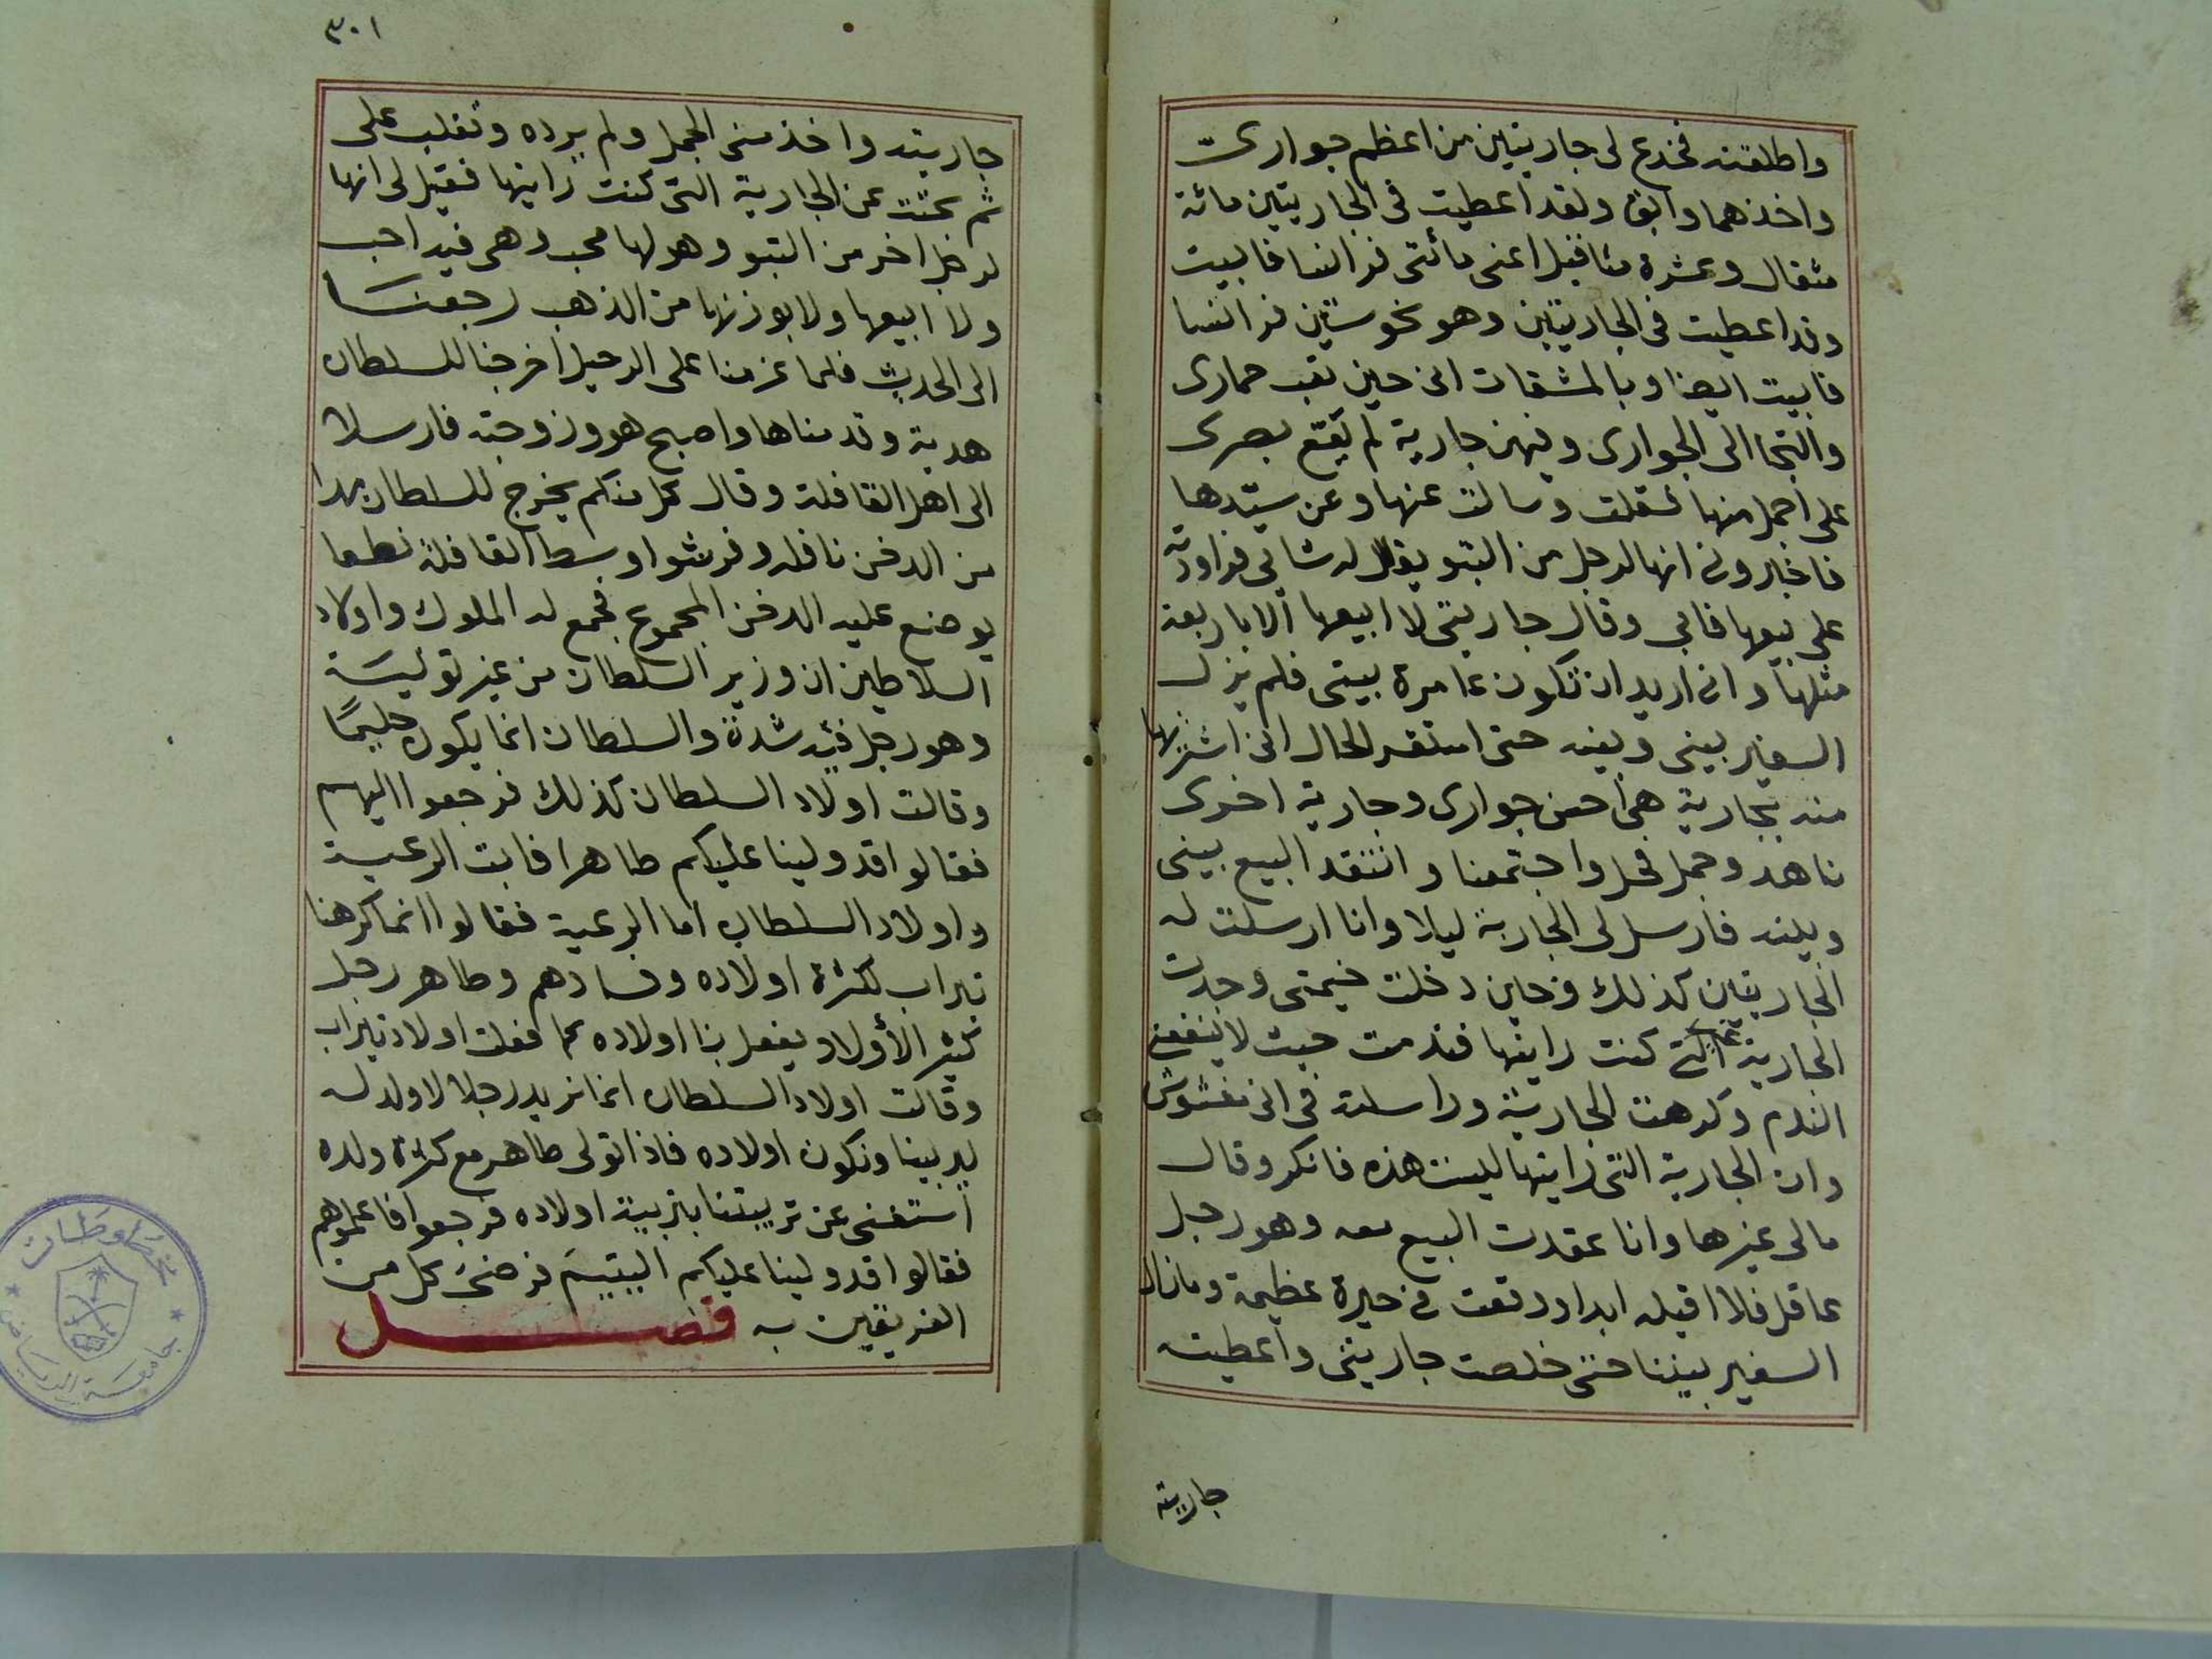 واطلقته فخدع لى جاريتين من اعظم جوارى
واخذهما وابق ولقد اعطيت فى الجاريتين مائة
مثقال وعشرة مثاقيل اعنى مائتى فرانسا فابيت
وقد اعطيت فى الجاريتين وهو نحو ستين فرانسا
فابيت ايضا وبالمشقات انى حين تعب حمارى
والتجا الى الجوارى وفيهن جارية لم يقع بصرى
على اجمل منها فسقلت وسالت عنها وعن سيدها
فاخبرونى انها لرجل من التبو يقال له شاىى فراودته
على بيعها فابى وقال جاريتى لا ابيعها الا باربعة
مثلها وانى اريد ان تكون عامرة بيتى فلم يزل
السفير بينى وبينه حتى استقر الحال انى اشتريها
منه بجارية هى احسن جوارى وجارية اخرى
ناهد وجمل فحل واجتمعنا وانتقد البيع بينى
وبينه فارسل لى الجارية ليلا وانا ارسلت له
الجاريتين كذلك فحين دخلت خيمتى وجدت
الجارية غير التى كنت رايتها فندمت حيث لا ينفع
الندم وكرهت الجارية وراسلته فى انى مغشوش
وان الجارية التى رايتها ليست هذه فانكر وقال
مالى غيرها وانا عقدت البيع معه وهو رجل
عاقل فلا اقيله ابدا ووقعت فى حيرة عظيمة ومازال
السفير بيننا حتى خلصت جاريتى واعطيت
جاريته
٣٠١
جاريته واخذ منى الجمل ولم يرده وتغلب على
ثم بحثت عن الجارية التى كنت رايتها فقيل لى انها
لرجل اخر من التبو وهو لها محب وهى فيه احب
ولا ابيعها ولا بوزنها من الذهب رجعنا
الى الحديث فلما عزمنا على الرحيل اخرجنا للسلطان
هدية وقدمناها واصبح هو وزوجته فارسلا
الى اهل القافلة وقال كل منكم يخرج للسلطان بهدا
من الدخن نافله وفرشوا وسط القافلة نطعا
يوضع عليه الدخن المجموع فجمع له الملوك واولاد
السلاطين ان وزير السلطان من غير توليسة
وهو رجل فيه شدة والسلطان انما يكون حليما
وقالت اولاد السلطان كذلك فرجعوا اليهم
فقالوا قد ولينا عليكم طاهرا فابت الرعية
واولاد السلطان اما الرعية فقالوا انما كرهنا
تيراب لكثرة اولاده وفسادهم وطاهر رجل
كثير الأولاد يفعل بنا اولاده كما فعلت اولاد تيراب
وقالت اولاد السلطان انما نريد رجلا لا ولد له
ليربينا ونكون اولاده فاذا تولى طاهر مع كثرة ولده
استغنى عن تربيتنا بتربية اولاده فرجعوا فاعلموهم
فقالوا قد ولينا عليكم اليتيم فرضى كل من
الفريقين به فصل
مخطوطات
جامعة الرياض